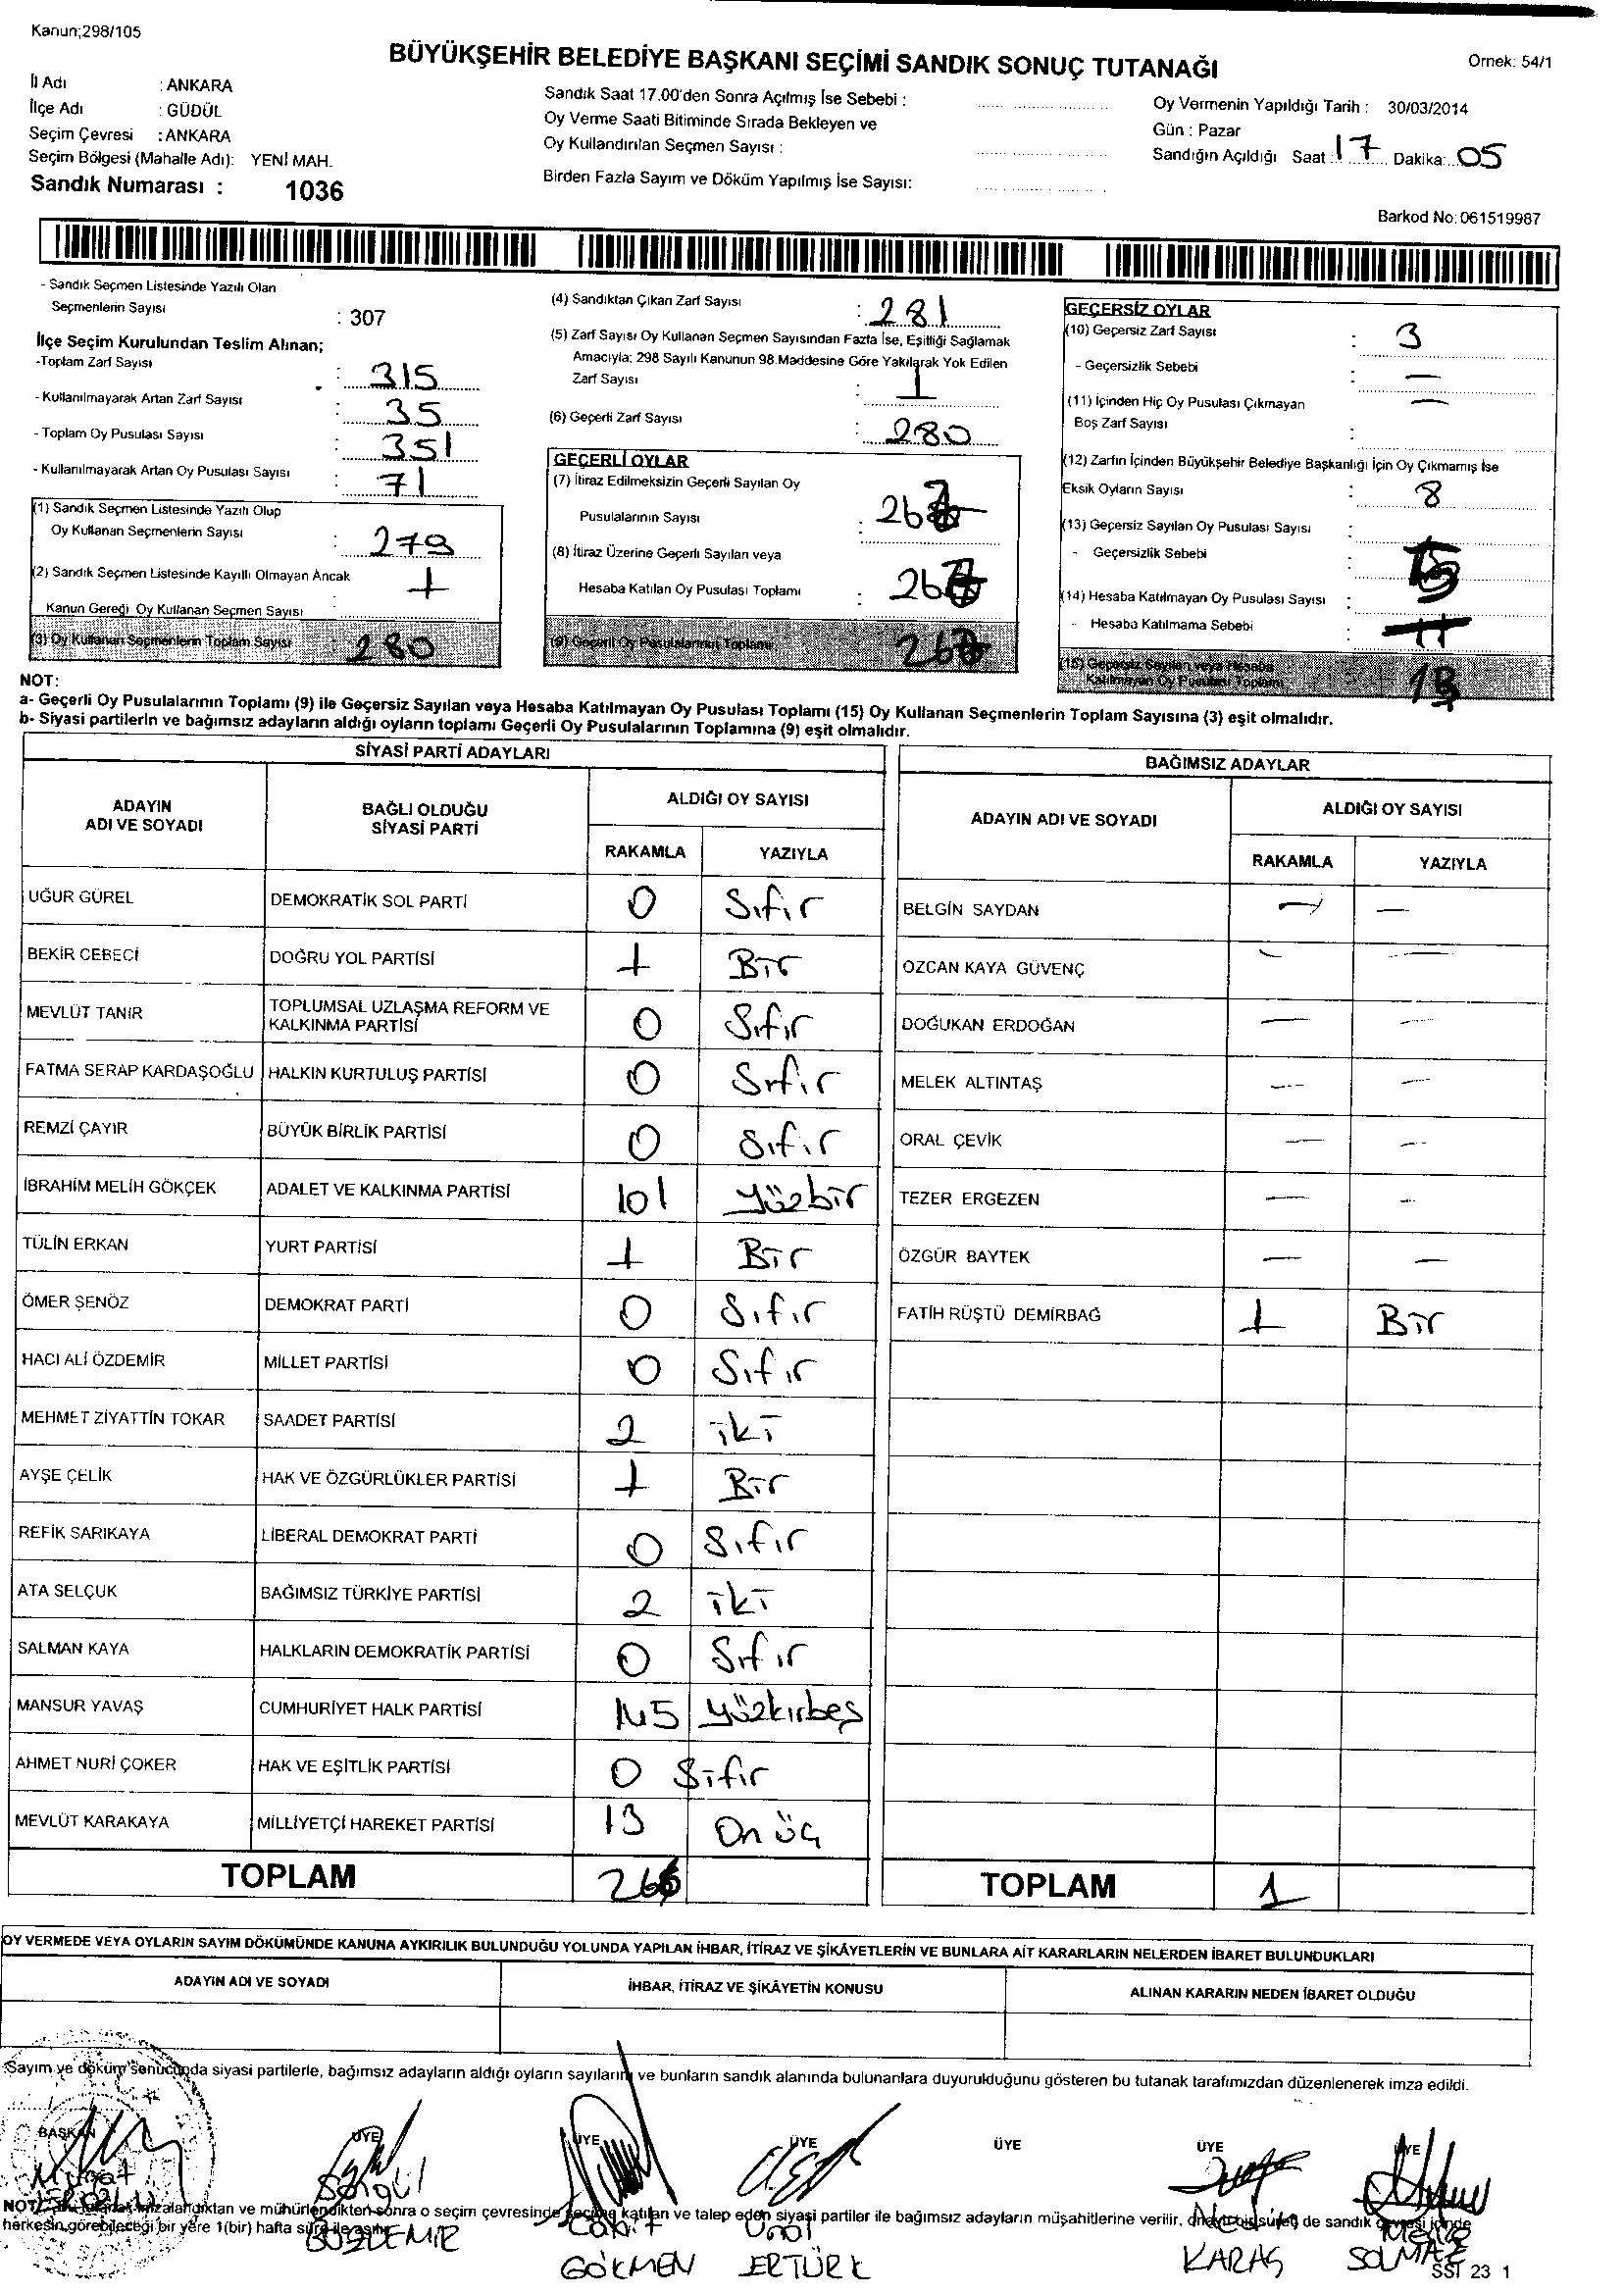 Kanun;298/105
BÜYÜKŞEHİR BELEDİYE BAŞKANI SEÇİMİ SANDIK SONUÇ TUTANAĞI
Ornek: 54/1
İl Adı : ANKARA
İlçe Adı : GÜDÜL
Seçim Çevresi : ANKARA
Seçim Bölgesi (Mahalle Adı): YENİ MAH.
Sandık Numarası : 1036
Sandık Saat 17.00'den Sonra Açılmış İse Sebebi :
Oy Verme Saati Bitiminde Sırada Bekleyen ve
Oy Kullandırılan Seçmen Sayısı :
Birden Fazla Sayım ve Döküm Yapılmış İse Sayısı:
Oy Vermenin Yapıldığı Tarih : 30/03/2014
Gün : Pazar
Sandığın Açıldığı Saat : 17 Dakika: 05
Barkod No: 061519987
- Sandık Seçmen Listesinde Yazılı Olan
Seçmenlerin Sayısı : 307
İlçe Seçim Kurulundan Teslim Alınan;
-Toplam Zarf Sayısı : 315
- Kullanılmayarak Artan Zarf Sayısı : 35
- Toplam Oy Pusulası Sayısı : 351
- Kullanılmayarak Artan Oy Pusulası Sayısı : 71
(1) Sandık Seçmen Listesinde Yazılı Olup
Oy Kullanan Seçmenlerin Sayısı : 279
(2) Sandık Seçmen Listesinde Kayıllı Olmayan Ancak
Kanun Gereği Oy Kullanan Seçmen Sayısı : 1
(3) Oy Kullanan Seçmenlerin Toplam Sayısı 280
(4) Sandıktan Çıkan Zarf Sayısı : 281
(5) Zarf Sayısı Oy Kullanan Seçmen Sayısından Fazla İse, Eşitliği Sağlamak
Amacıyla; 298 Sayılı Kanunun 98.Maddesine Göre Yakılarak Yok Edilen
Zarf Sayısı : 1
(6) Geçerli Zarf Sayısı : 280
GEÇERLİ OYLAR
(7) İtiraz Edilmeksizin Geçerli Sayılan Oy
Pusulalarının Sayısı : 267
(8) İtiraz Üzerine Geçerli Sayılan veya
Hesaba Katılan Oy Pusulası Toplamı : 267
(9) Geçerli Oy Pusulalarının Toplamı 267
GEÇERSİZ OYLAR
(10) Geçersiz Zarf Sayısı : 3
- Geçersizlik Sebebi : —
(11) İçinden Hiç Oy Pusulası Çıkmayan —
Boş Zarf Sayısı :
(12) Zarfın İçinden Büyükşehir Belediye Başkanlığı İçin Oy Çıkmamış İse
Eksik Oyların Sayısı : 8
(13) Geçersiz Sayılan Oy Pusulası Sayısı :
- Geçersizlik Sebebi :
(14) Hesaba Katılmayan Oy Pusulası Sayısı :
- Hesaba Katılmama Sebebi :
(15) Geçersiz Sayılan veya Hesaba
Katılmayan Oy Pusulası Toplamı 13
NOT:
a- Geçerli Oy Pusulalarının Toplamı (9) ile Geçersiz Sayılan veya Hesaba Katılmayan Oy Pusulası Toplamı (15) Oy Kullanan Seçmenlerin Toplam Sayısına (3) eşit olmalıdır.
b- Siyasi partilerin ve bağımsız adayların aldığı oyların toplamı Geçerli Oy Pusulalarının Toplamına (9) eşit olmalıdır.
SİYASİ PARTİ ADAYLARI
ADAYIN ADI VE SOYADI BAĞLI OLDUĞU SİYASİ PARTİ ALDIĞI OY SAYISI
RAKAMLA YAZIYLA
UĞUR GÜREL DEMOKRATİK SOL PARTİ 0 Sıfır
BEKİR CEBECİ DOĞRU YOL PARTİSİ 1 Bir
MEVLÜT TANIR TOPLUMSAL UZLAŞMA REFORM VE KALKINMA PARTİSİ 0 Sıfır
FATMA SERAP KARDAŞOĞLU HALKIN KURTULUŞ PARTİSİ 0 Sıfır
REMZİ ÇAYIR BÜYÜK BİRLİK PARTİSİ 0 Sıfır
İBRAHİM MELİH GÖKÇEK ADALET VE KALKINMA PARTİSİ 101 yüzbir
TÜLİN ERKAN YURT PARTİSİ 1 Bir
ÖMER ŞENÖZ DEMOKRAT PARTİ 0 Sıfır
HACI ALİ ÖZDEMİR MİLLET PARTİSİ 0 Sıfır
MEHMET ZİYATTİN TOKAR SAADET PARTİSİ 2 iki
AYŞE ÇELİK HAK VE ÖZGÜRLÜKLER PARTİSİ 1 Bir
REFİK SARIKAYA LİBERAL DEMOKRAT PARTİ 0 Sıfır
ATA SELÇUK BAĞIMSIZ TÜRKİYE PARTİSİ 2 iki
SALMAN KAYA HALKLARIN DEMOKRATİK PARTİSİ 0 Sıfır
MANSUR YAVAŞ CUMHURİYET HALK PARTİSİ 145 yüzkırbeş
AHMET NURİ ÇOKER HAK VE EŞİTLİK PARTİSİ 0 Sıfır
MEVLÜT KARAKAYA MİLLİYETÇİ HAREKET PARTİSİ 13 On üç
TOPLAM 266
BAĞIMSIZ ADAYLAR
ADAYIN ADI VE SOYADI ALDIĞI OY SAYISI
RAKAMLA YAZIYLA
BELGİN SAYDAN — —
OZCAN KAYA GÜVENÇ — —
DOĞUKAN ERDOĞAN — —
MELEK ALTINTAŞ — —
ORAL ÇEVİK — —
TEZER ERGEZEN — —
ÖZGÜR BAYTEK — —
FATİH RÜŞTÜ DEMİRBAĞ 1 Bir
TOPLAM 1
OY VERMEDE VEYA OYLARIN SAYIM DÖKÜMÜNDE KANUNA AYKIRILIK BULUNDUĞU YOLUNDA YAPILAN İHBAR, İTİRAZ VE ŞİKÂYETLERİN VE BUNLARA AİT KARARLARIN NELERDEN İBARET BULUNDUKLARI
ADAYIN ADI VE SOYADI İHBAR, İTİRAZ VE ŞİKÂYETİN KONUSU ALINAN KARARIN NEDEN İBARET OLDUĞU
Sayım ve döküm sonucunda siyasi partilerle, bağımsız adayların aldığı oyların sayılarını ve bunların sandık alanında bulunanlara duyurulduğunu gösteren bu tutanak tarafımızdan düzenlenerek imza edildi.
BAŞKAN ÜYE ÜYE ÜYE ÜYE ÜYE ÜYE
Murat Songül
NOT: imzalandıktan ve mühürlendikten sonra o seçim çevresinde seçime katılan ve talep eden siyasi partiler ile bağımsız adayların müşahitlerine verilir, de sandık çevresi içinde
herkesin görebileceği bir yere 1(bir) hafta süre ile asılır.
Ünal
GÖKMEN ERTÜRK KARAŞ SOLMAZ
SST 23 1